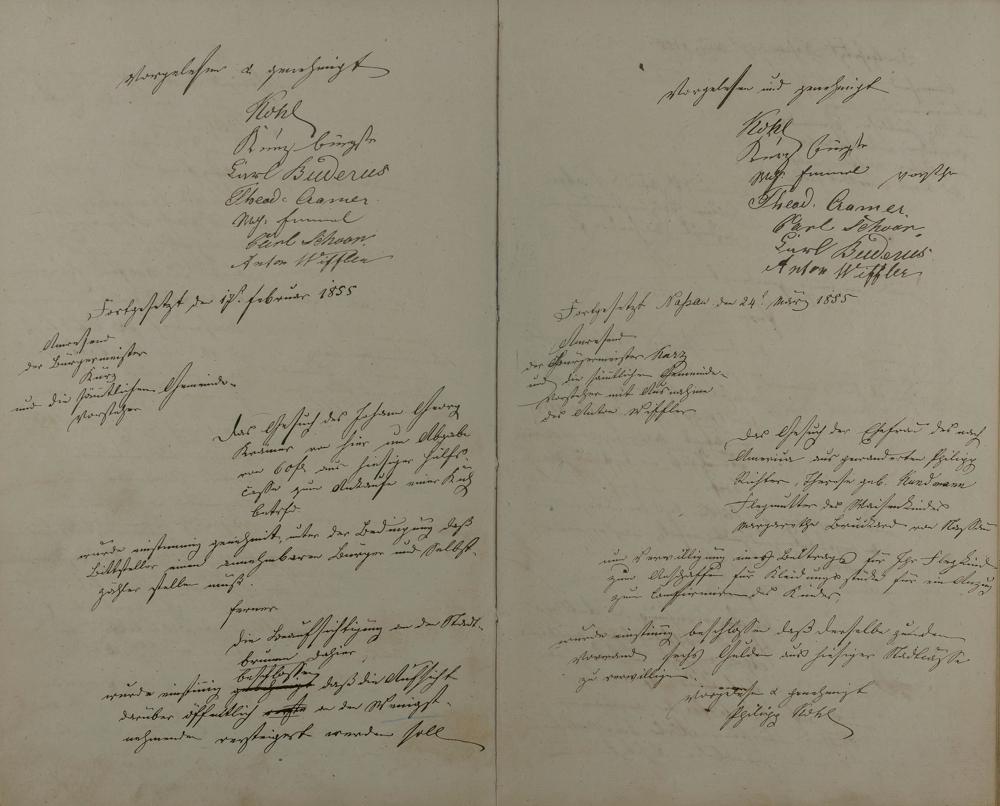 Vorgelesen & genehmigt
Kohl
Kurz Bürgstr
Carl Buderus
Theod. Cramer.
Ml. Emmel
Carl Schoan.
Anton Wiffler
Fortgesetzt den 17t. Februar 1855
Anwesend
der Bürgermeister
Kurz
und die sämtlichen Gemeinde-
vorsteher
Das Gesuch des Johann Georg
Kramer von hier um Abgabe
von 60 fl. aus hiesiger Hülfs-
Casse zum Ankaufe einer Kuh
betrfd.
wurde einstimmig genehmit, unter der Bedingung daß
Bittsteller einen annehmbaren Bürger und Selbst-
zahler stellen muß.
ferner
die Beaufsichtigung an den Stadt-
brunnen dahier
beschlossen
wurde einstimig daß die Aufsicht
darüber öffentlich an den Wenigst-
nehmenden versteigert werden soll
Vorgelesen und genehmigt
Kohl
Kurz Bürgstr
Ml. Emmel Vorsthr
Theod. Cramer.
Carl Schoan.
Carl Buderus
Anton Wiffler
Fortgesetzt Nassau den 24t. März 1855
Anwesend
der Bürgermeister Kurz
und die sämtlichen Gemeinde-
vorsteher mit Ausnahme
des Anton Wiffler
Das Gesuch der Ehefrau des nach
America ausgewanderten Philipp
Richter, Therese geb. Kundmann
Flegmutter des Waisenkindes
Margarethe von Nassau
um Verwilligung eines Beitrags für Ihr Flegkind
zum Anschaffen für Kleidungsstücke für ein Anzug
zum Confirmiren des Kindes,
wurde einstimig beschlossen daß derselbe zu dem
Vorwand sechs Gulden aus hiesiger Stadtkasse
zu verwilligen.
Vorgelesen & genehmigt
Philipp Kohl